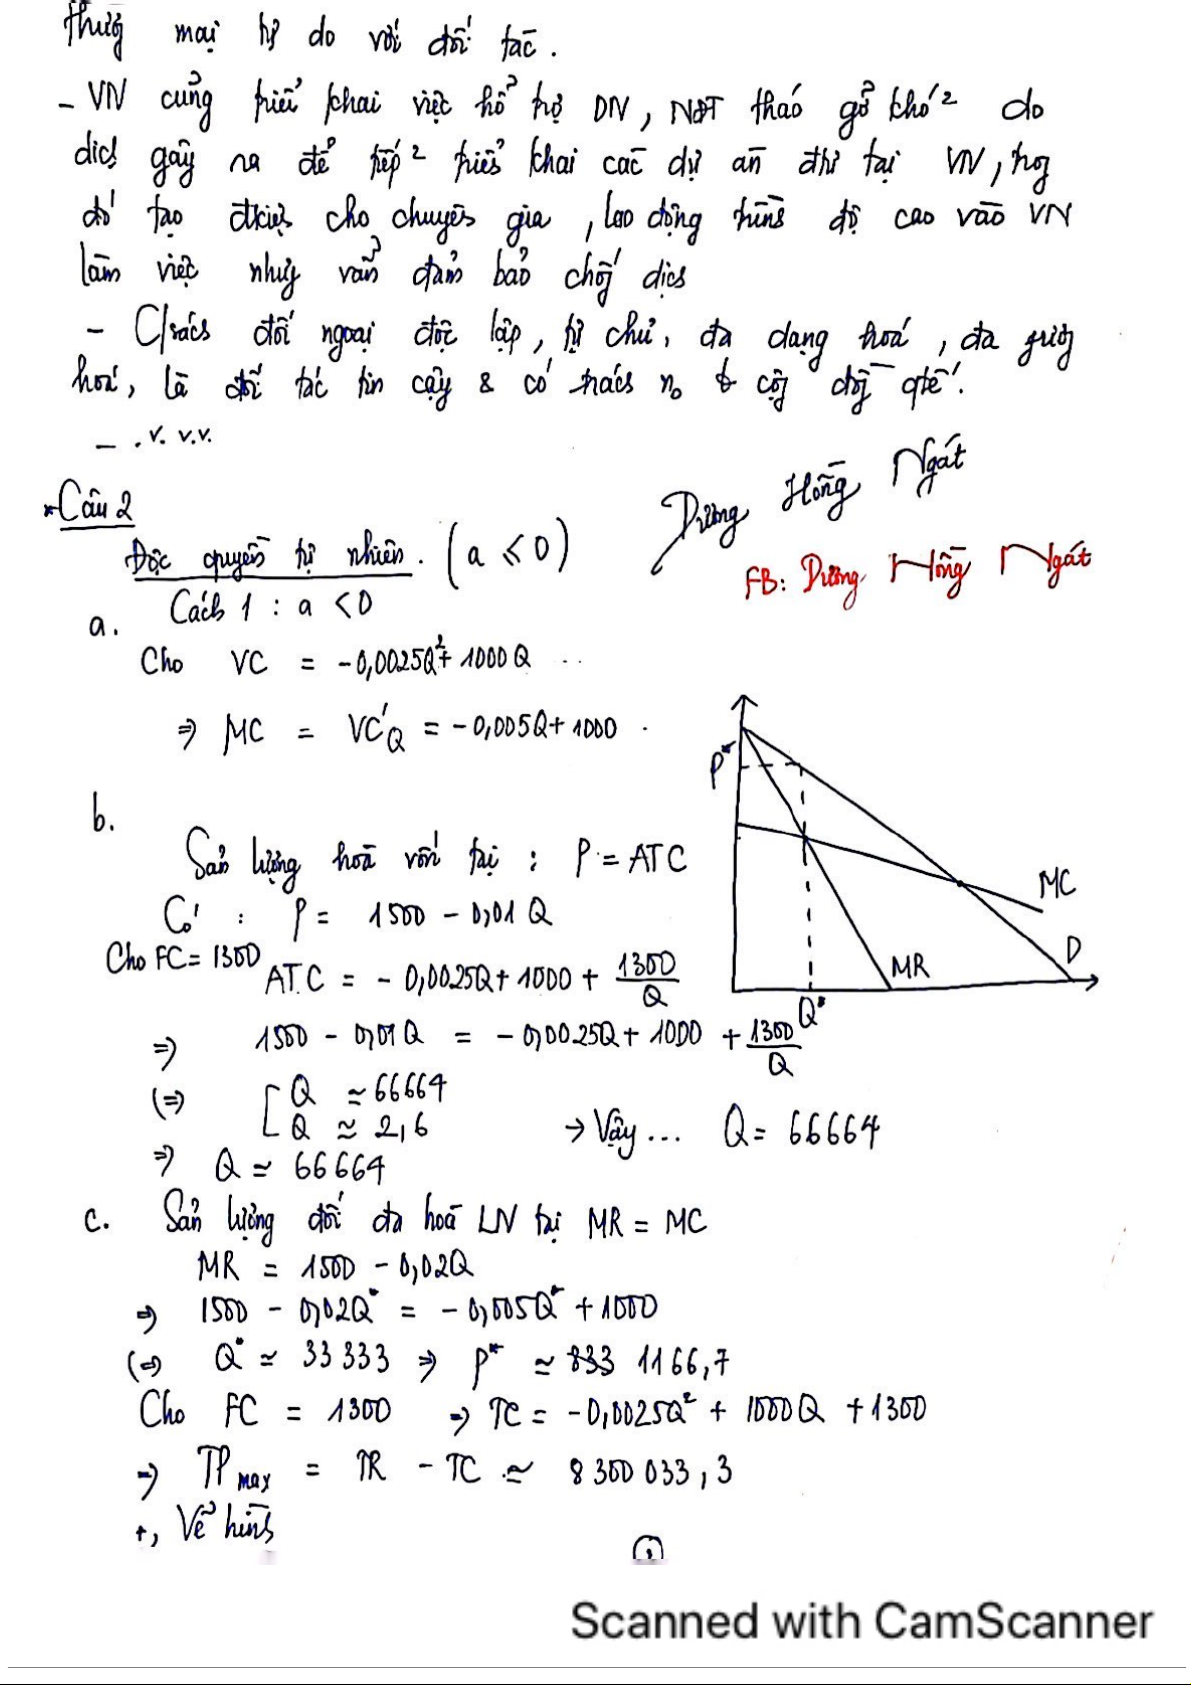 thương mại tự do với đối tác.
- VN cũng triển khai việc hỗ trợ DN, NĐT tháo gỡ khó² do
dịch gây ra để tiếp² triển khai các dự án đtư tại VN, trog
đó tạo đkiện cho chuyên gia, lao động trình độ cao vào VN
làm việc nhưg vẫn đảm bảo chốg dịch
- C/sách đối ngoại độc lập, tự chủ, đa dạng hoá, đa phươg
hoá, là đối tác tin cậy & có trách no cộg đồg qtế.
- . v. v.v.
* Câu 2
Dương Hồng Ngát
Độc quyền tự nhiên. (a ≤ 0)
FB: Dương Hồng Ngát
Cách 1 : a < 0
a.
Cho VC = -0,0025Q² + 1000Q
⇒ MC = VC'Q = -0,005Q + 1000
P*
MC
D
MR
Q*
b.
Sản lượng hoà vốn tại : P = ATC
Có : P = 1500 - 0,01Q
Cho FC = 1300
ATC = - 0,0025Q + 1000 + 1300/Q
⇒ 1500 - 0,01Q = - 0,0025Q + 1000 + 1300/Q
(⇒) [ Q ≃ 66664
Q ≈ 2,6
→ Vậy ... Q = 66664
⇒ Q ≃ 66664
c. Sản lượng tối đa hoá LN tại MR = MC
MR = 1500 - 0,02Q
⇒ 1500 - 0,02Q* = - 0,005Q* + 1000
(⇒) Q* ≃ 33 333 ⇒ P* ≃ 833 1166,7
Cho FC = 1300 ⇒ TC = -0,0025Q² + 1000Q + 1300
⇒ TP max = TR - TC ≃ 8 300 033,3
+, Vẽ hình
Scanned with CamScanner